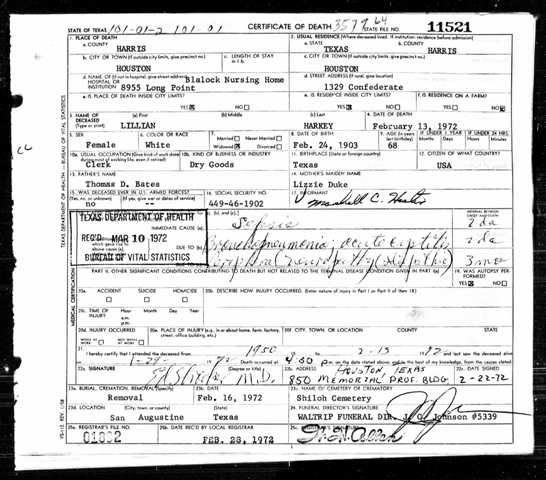 STATE OF TEXAS 101-01-2 101-01 CERTIFICATE OF DEATH 3579 64 STATE FILE NO. 11521
1. PLACE OF DEATH 2. USUAL RESIDENCE (Where deceased lived. If institution: residence before admission)
a. COUNTY HARRIS a. STATE TEXAS b. COUNTY HARRIS
b. CITY OR TOWN (If outside city limits, give precinct no.) c. LENGTH OF STAY c. CITY OR TOWN (If outside city limits, give precinct no.)
HOUSTON HOUSTON
d. NAME OF (If not in hospital, give street address) HOSPITAL OR INSTITUTION Blalock Nursing Home d. STREET ADDRESS (If rural, give location)
8955 Long Point 1329 Confederate
e. IS PLACE OF DEATH INSIDE CITY LIMITS? e. IS RESIDENCE INSIDE CITY LIMITS? f. IS RESIDENCE ON A FARM?
YES NO YES NO YES NO
3. NAME OF DECEASED (Type or print) (a) First (b) Middle (c) Last 4. DATE OF DEATH
LILLIAN HARKEY February 13, 1972
5. SEX 6. COLOR OR RACE 7. Married Never Married Widowed Divorced 8. DATE OF BIRTH 9. AGE (In years last birthday) IF UNDER 1 YEAR IF UNDER 24 HRS.
Female White Feb. 24, 1903 68
10a. USUAL OCCUPATION (Give kind of work done during most of working life, even if retired) 10b. KIND OF BUSINESS OR INDUSTRY 11. BIRTHPLACE (State or foreign country) 12. CITIZEN OF WHAT COUNTRY?
Clerk Dry Goods Texas USA
13. FATHER'S NAME 14. MOTHER'S MAIDEN NAME
Thomas D. Bates Lizzie Duke
15. WAS DECEASED EVER IN U.S. ARMED FORCES? 16. SOCIAL SECURITY NO. 17. INFORMANT
no -- 449-46-1902
TEXAS DEPARTMENT OF HEALTH
IMMEDIATE CAUSE (a) Sepsis 2 da
REC'D MAR 10 1972
Bronchopneumonia, acute 2 da
BUREAU OF VITAL STATISTICS
PART II. OTHER SIGNIFICANT CONDITIONS CONTRIBUTING TO DEATH BUT NOT RELATED TO THE TERMINAL DISEASE CONDITION GIVEN IN PART I(a) 19. WAS AUTOPSY PERFORMED?
YES NO
20a. ACCIDENT SUICIDE HOMICIDE 20b. DESCRIBE HOW INJURY OCCURRED. (Enter nature of injury in Part I or Part II of item 18)
20c. TIME OF INJURY Hour Month Day Year
a.m.
p.m.
20d. INJURY OCCURRED 20e. PLACE OF INJURY (e.g. in or about home, farm, factory, street, office building, etc.) 20f. CITY, TOWN, OR LOCATION COUNTY STATE
21. I hereby certify that I attended the deceased from 1950 2-13 and last saw the deceased alive
1-29- 72 Death occurred at 4:50 p.m. on the date stated above, and to the best of my knowledge, from the causes stated.
22a. SIGNATURE (Degree or title) M.D. 22b. ADDRESS HOUSTON, TEXAS 22c. DATE SIGNED
850 MEMORIAL PROF. BLDG. 2-22-72
23a. BURIAL, CREMATION, REMOVAL (Specify) 23b. DATE 23c. NAME OF CEMETERY OR CREMATORY
Removal Feb. 16, 1972 Shiloh Cemetery
23d. LOCATION (City, town, or county) (State) 24. FUNERAL DIRECTOR'S SIGNATURE
San Augustine Texas WALTRIP FUNERAL DIR. J. O. Johnson #5339
25a. REGISTRAR'S FILE NO. 25b. DATE REC'D BY LOCAL REGISTRAR 25c. REGISTRAR'S SIGNATURE
FEB. 28, 1972
TEXAS DEPARTMENT OF HEALTH — BUREAU OF VITAL STATISTICS
MEDICAL CERTIFICATION